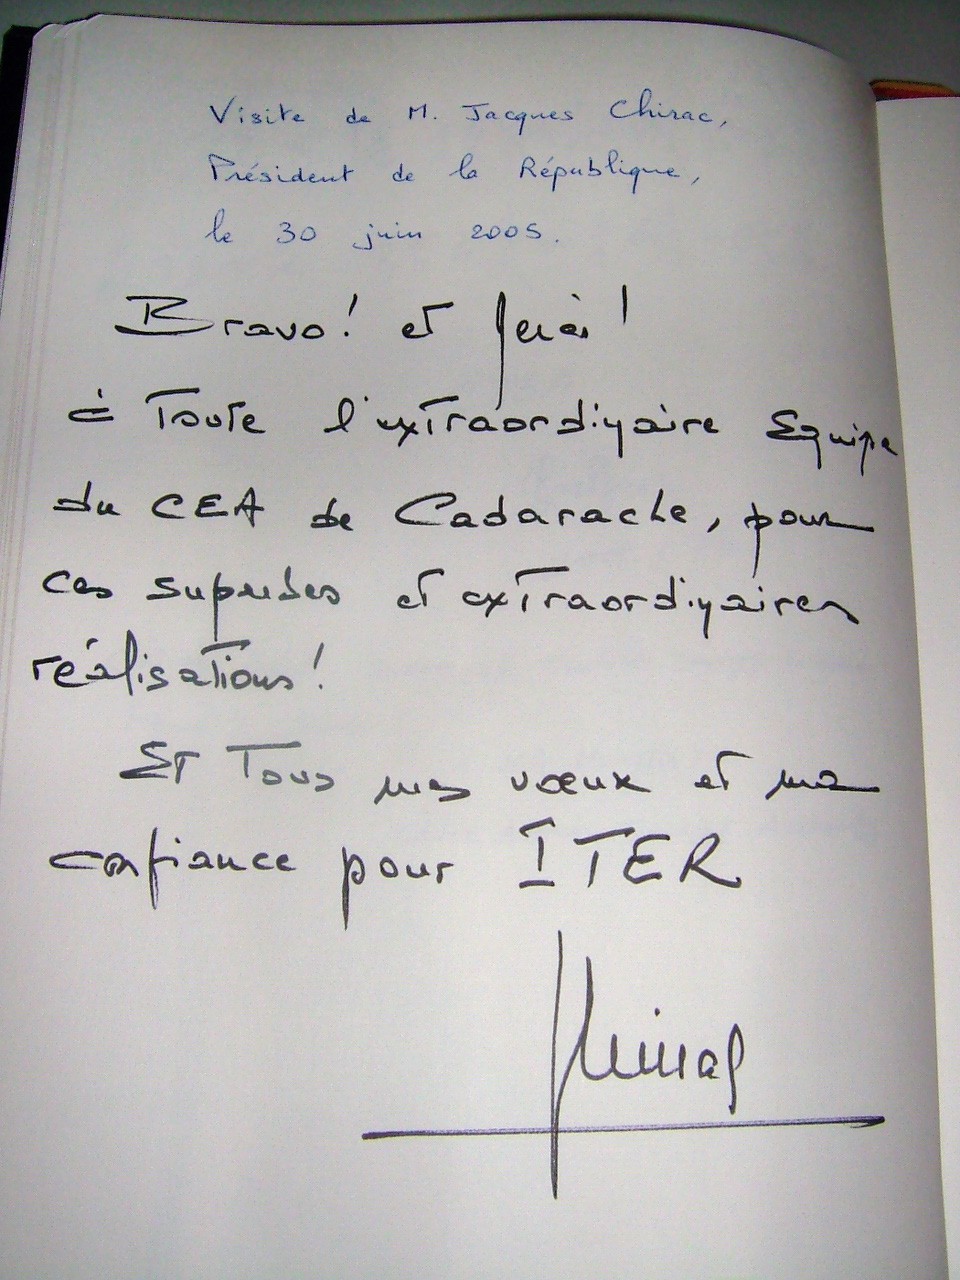 Visite de M. Jacques Chirac,
Président de la République,
le 30 juin 2005.
Bravo! et Merci!
à Toute l'extraordinaire Equipe
du CEA de Cadarache, pour
ces superbes et extraordinaires
réalisations!
Et Tous mes vœux et ma
confiance pour ITER